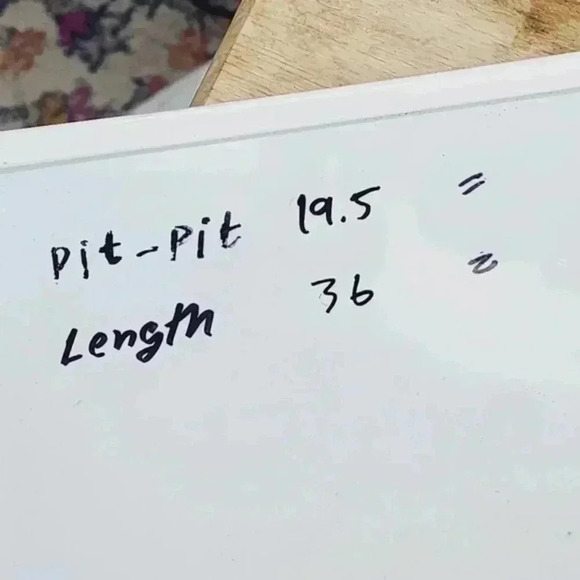 Pit-Pit 19.5 =
Length 36 =